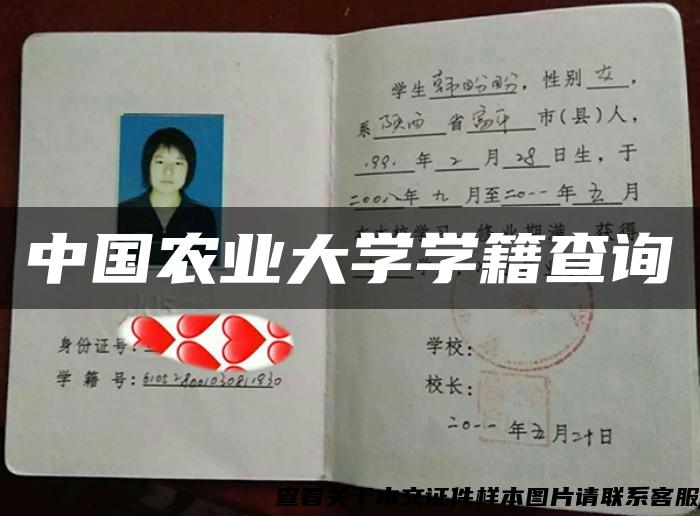 学生韩盼盼，性别女，
系陕西省富平市(县)人，
.991.年2月28日生，于
二00八年九月至二0一一年五月
在本校学习 修业期满 获得
中国农业大学学籍查询
身份证号:
学籍号:
学校:
校长:
二0一一年五月二十日
查看关于本文证件样本图片请联系客服